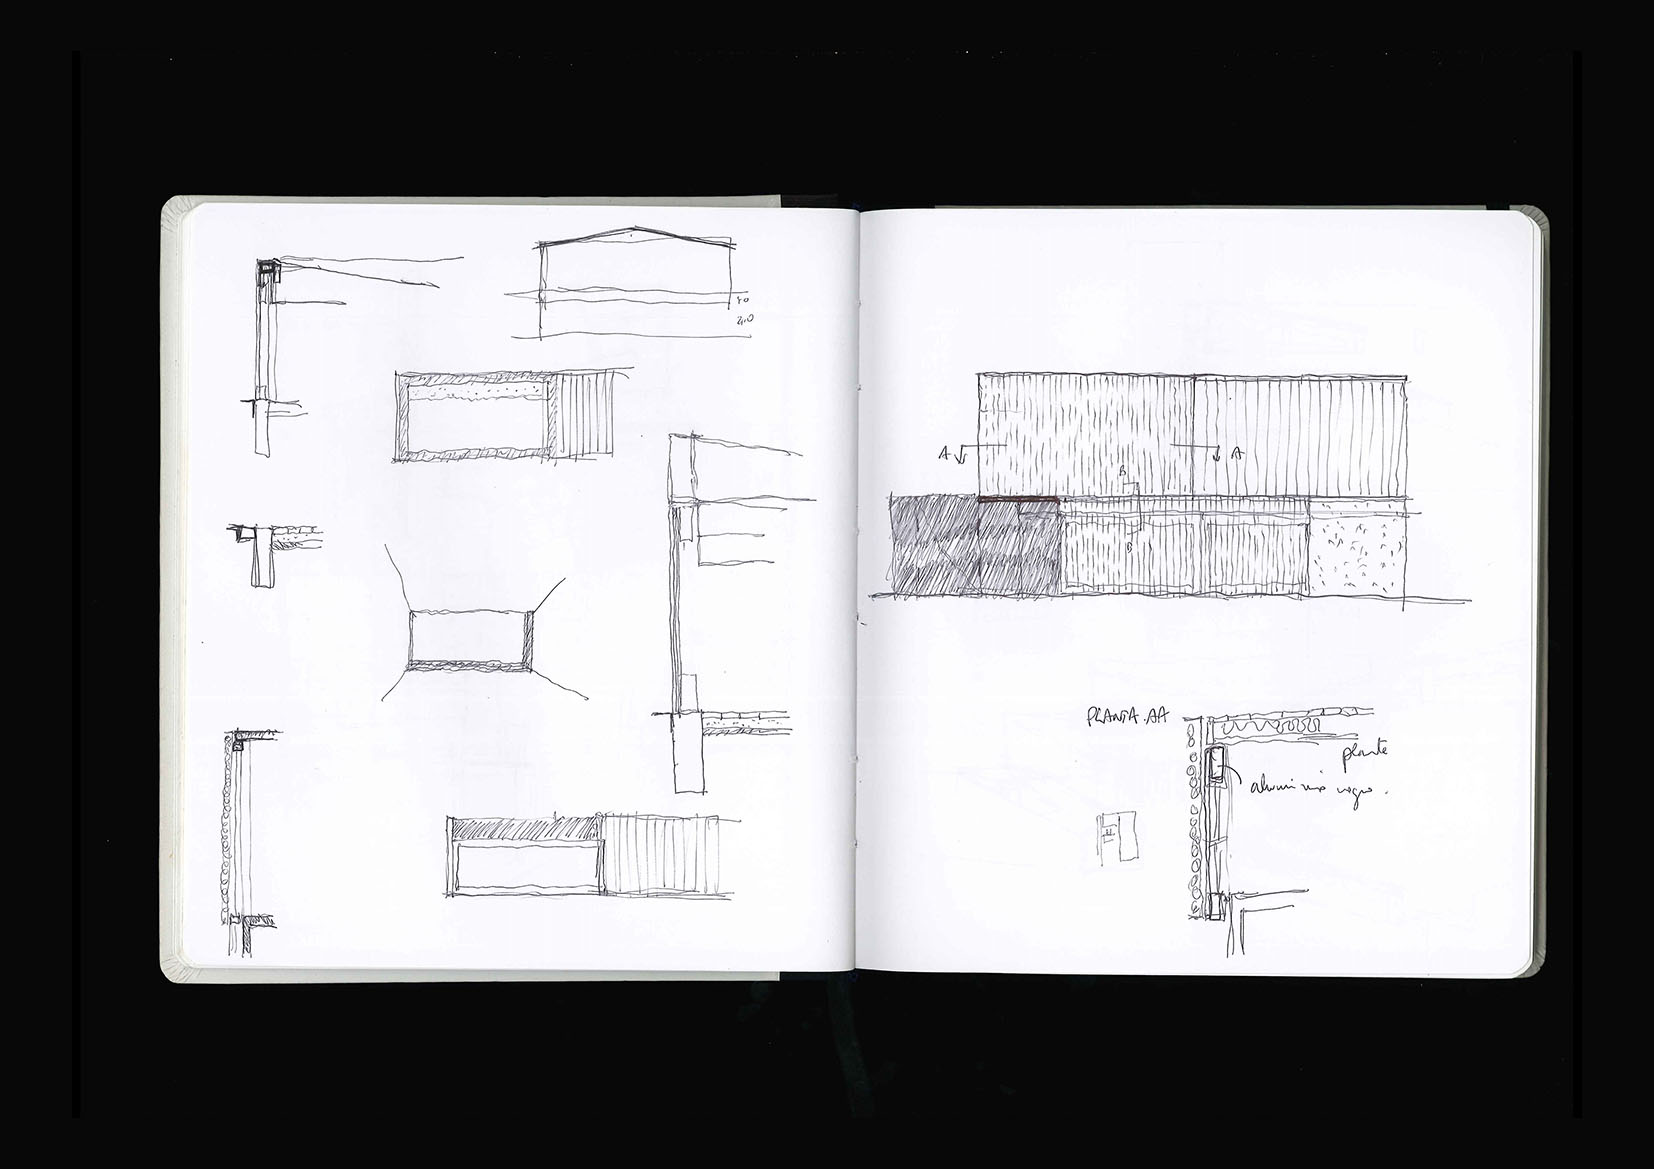 2,0
A
A
B
B
PLANTA. AA
plante
aluminio negro.